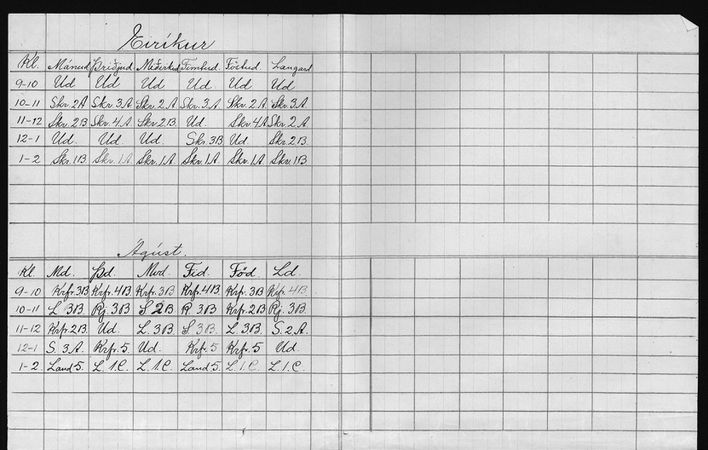 Eiríkur
Kl. Mánud. Þriðjud. Fimtud. Föstud. Laugard.
9-10 Ud Ud Ud Ud Ud Ud
10-11 Skr. 2A Skr. 3A Skr. 2A Skr. 3A Skr. 2A Skr. 3A
11-12 Skr. 2B Skr. 4A Skr. 2B Ud. Skr. 4A Skr. 2A
12-1 Ud. Ud Ud. Skr. 3B Ud Skr. 2B
1-2 Skr. 1B Skr. 1A Skr. 1A Skr. 1A Skr. 1A Skr. 1B
Ágúst.
Kl. Md. Þd. Mvd. Fid. Föd Ld.
9-10 Krfr. 3B Krfr. 4B Krfr. 3B Krfr. 4B Krfr. 3B Krfr. 4B
10-11 L 3B Rj. 3B S 2B R 3B Krfr. 2B Rj. 3B
11-12 Krfr. 2B Ud. L. 3B S 3B. L. 3B. S. 2A.
12-1 S. 3A. Krfr. 5 Ud. Krfr. 5 Krfr. 5 Ud.
1-2 Land 5. L. 1C. L. 1C. Land 5. L. 1C L. 1C.